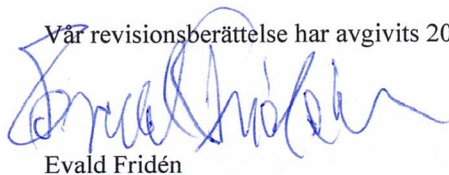 Vår revisionsberättelse har avgivits 20
Evald Fridén